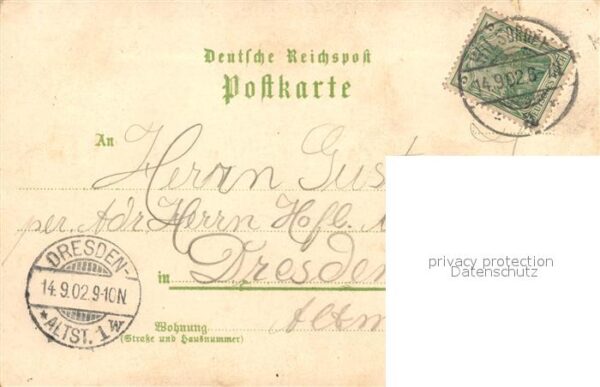 Deutsche Reichspost
Postkarte
14.9.02.6-
An Herrn Gust
per. Adr Herrn Hfl.
privacy protection
Datenschutz
DRESDEN-
14.9.02.9-10N.
*ALTST. 1 w.
in Dresden
Wohnung
(Straße und Hausnummer)